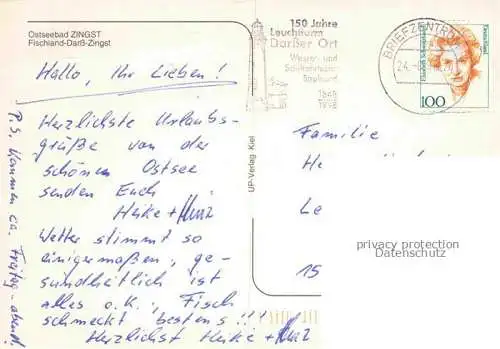 Ostseebad ZINGST
Fischland-Darß-Zingst
Hallo, Ihr Lieben!
Herzlichste Urlaubs-
grüße von der
schönen Ostsee
senden Euch
Heike +
Wetter stimmt so
einigermaßen, ge-
sundheitlich ist
alles o.k., Fisch
schmeckt bestens!!!
Herzlichst Heike +
P.S. kommen ca. Freitag-abend!
UP-Verlag Kiel
150 Jahre
Leuchtturm
Darßer Ort
Wasser- und
1848
1998
BRIEFZENTRUM
24.
100
Familie
He
Le
15
privacy protection
Datenschutz